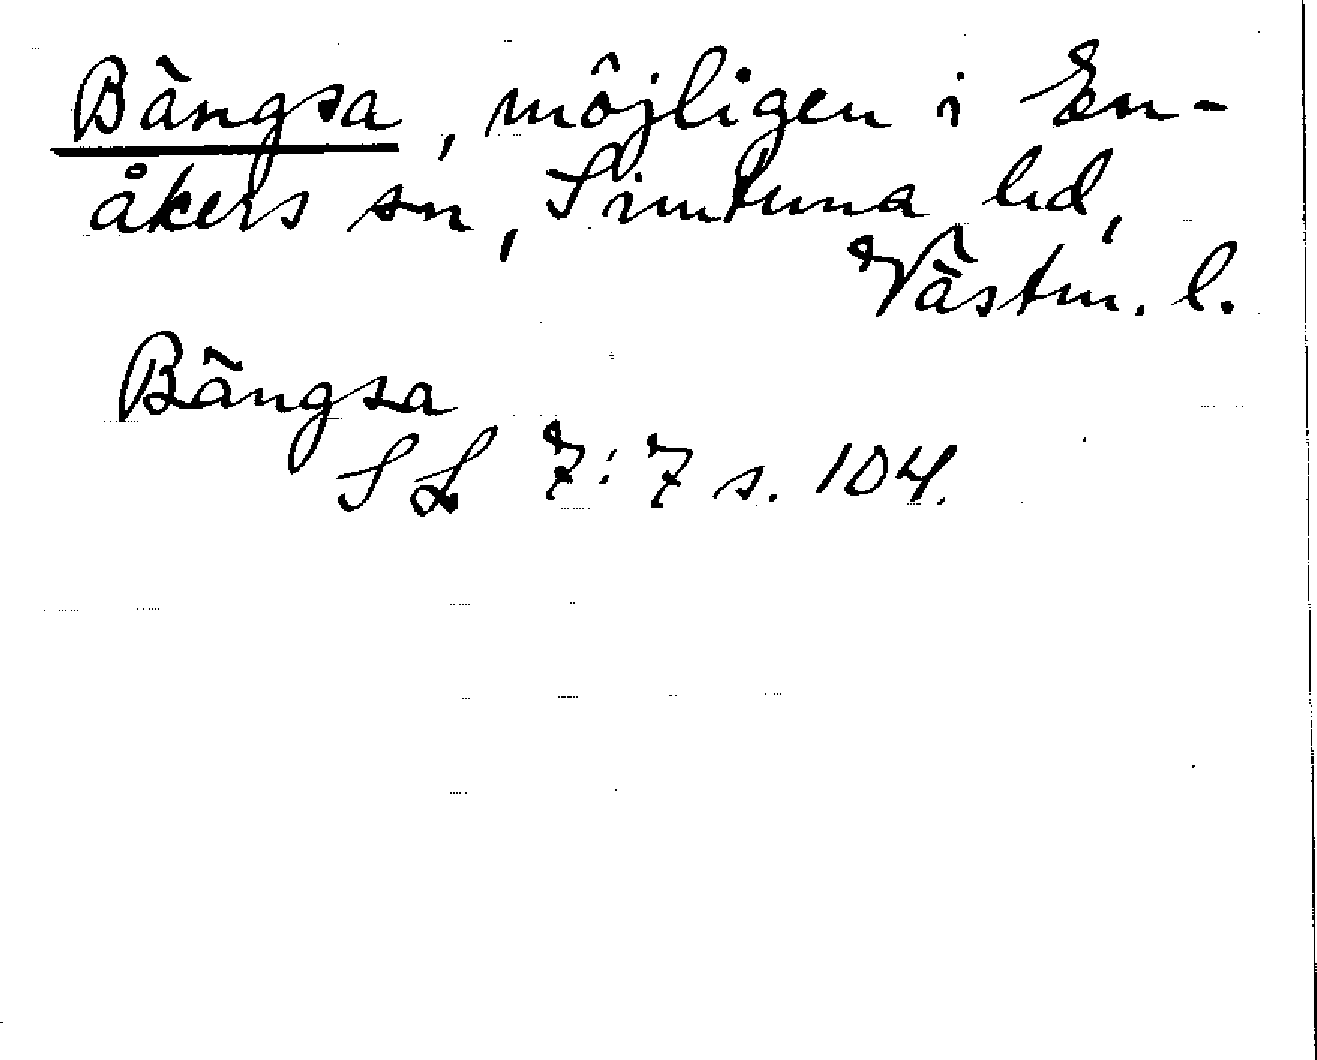 Bängsa, möjligen i En-
åkers sn, Simtuna hd,
Västm. l.
Bängsa
SL 7:7 s. 104.